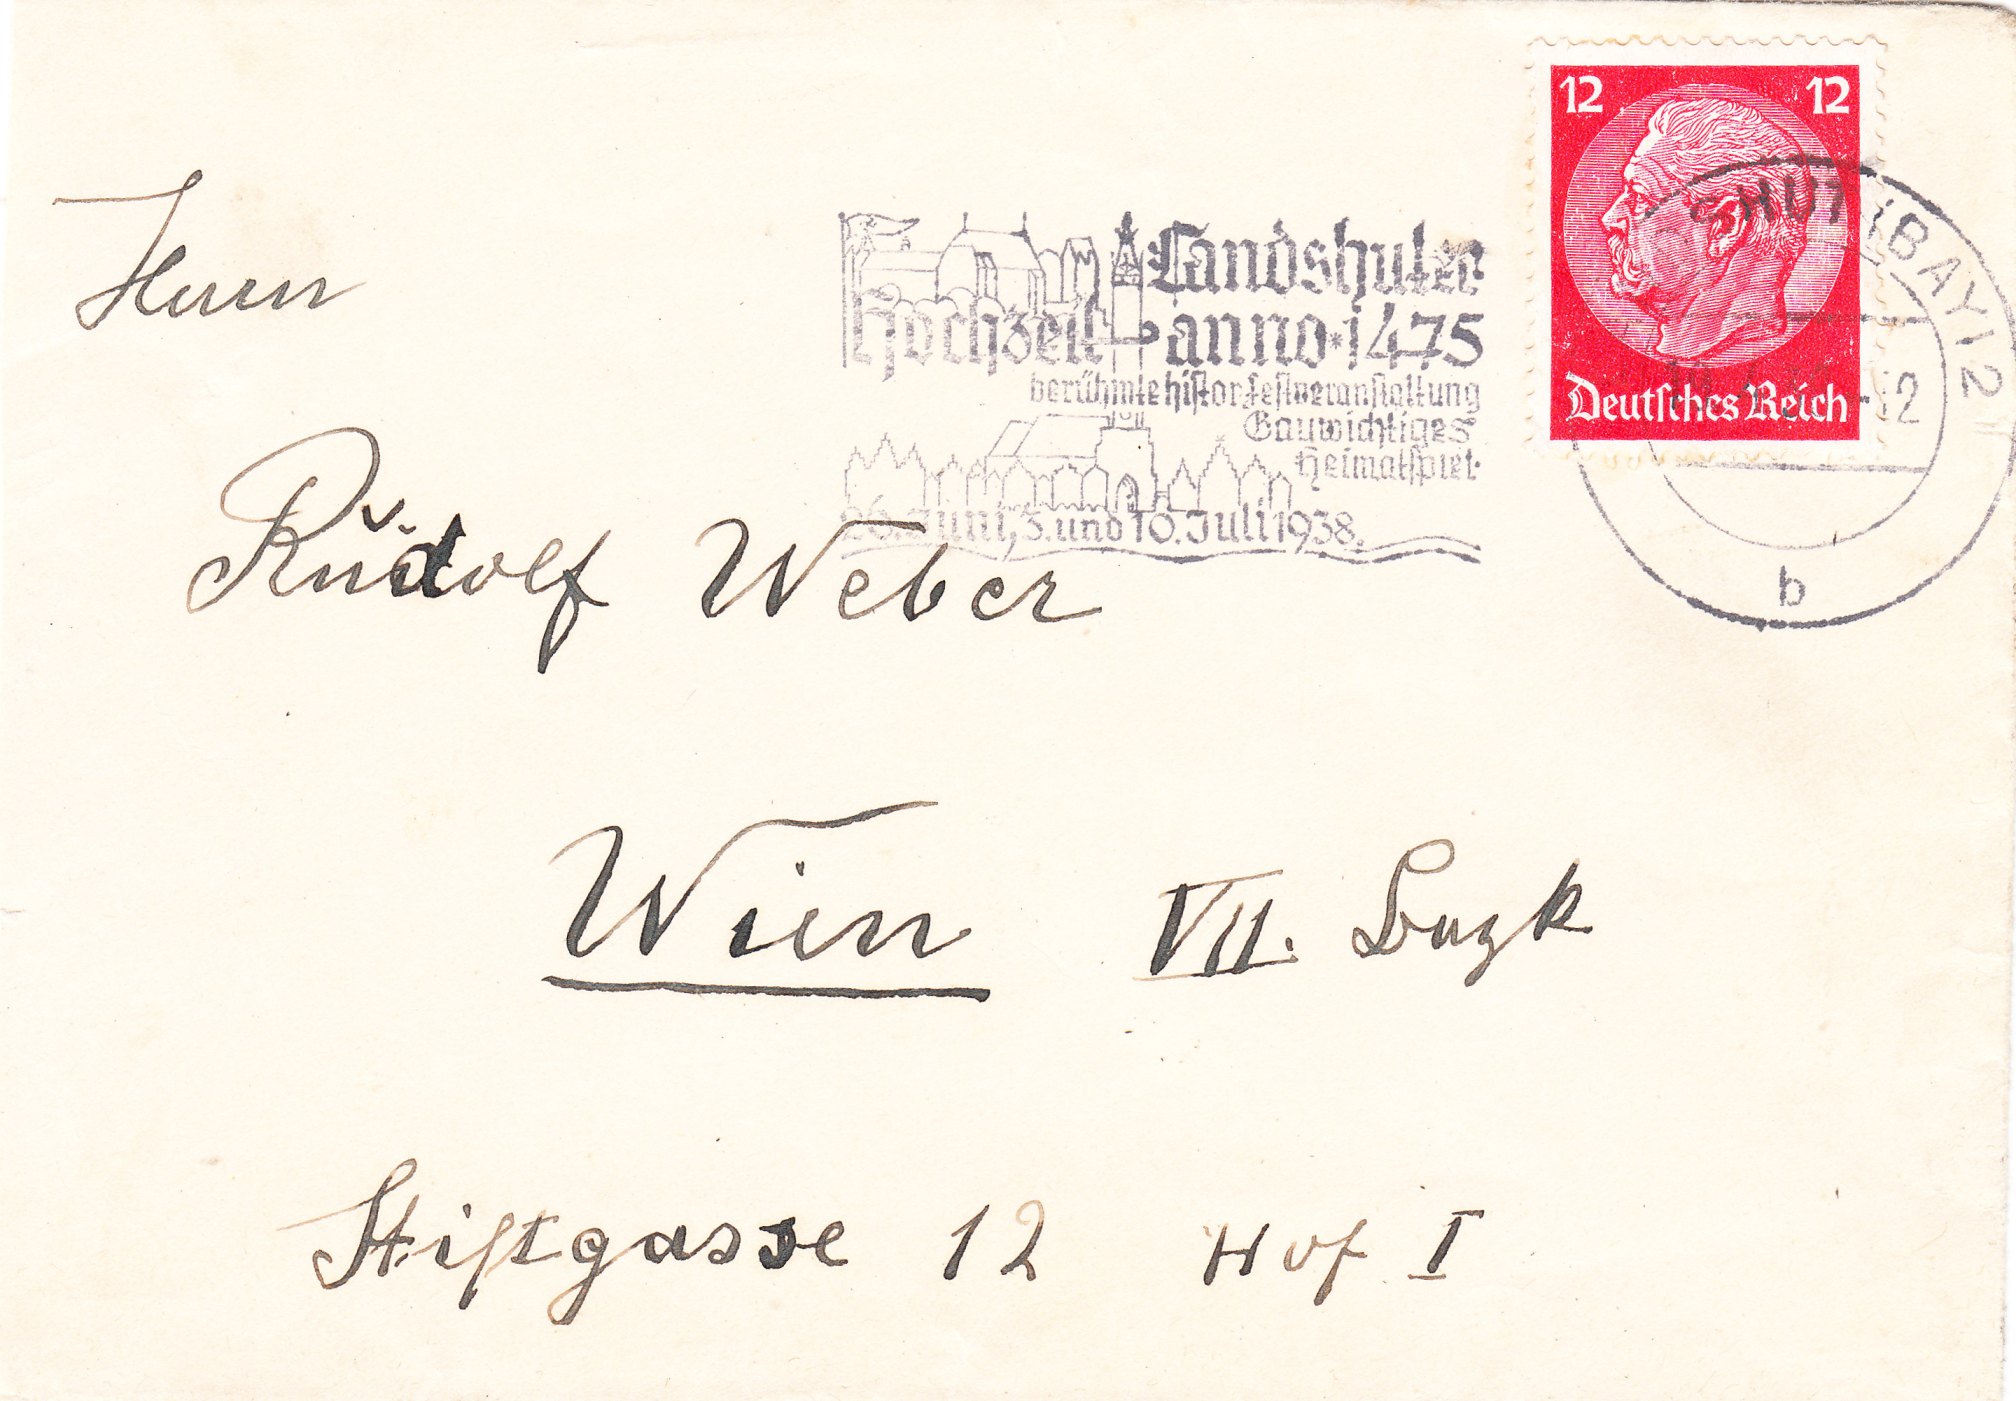 12 12
Deutsches Reich
Landshuter
Hochzeit anno 1475
berühmte histor. Festveranstaltung
Gauwichtiges
Heimatspiel
26. Juni, 3. und 10. Juli 1938.
SHUT (BAY) 2
b
Herrn
Rudolf Weber
Wien VII. Bezk
Stiftgasse 12 Hof I